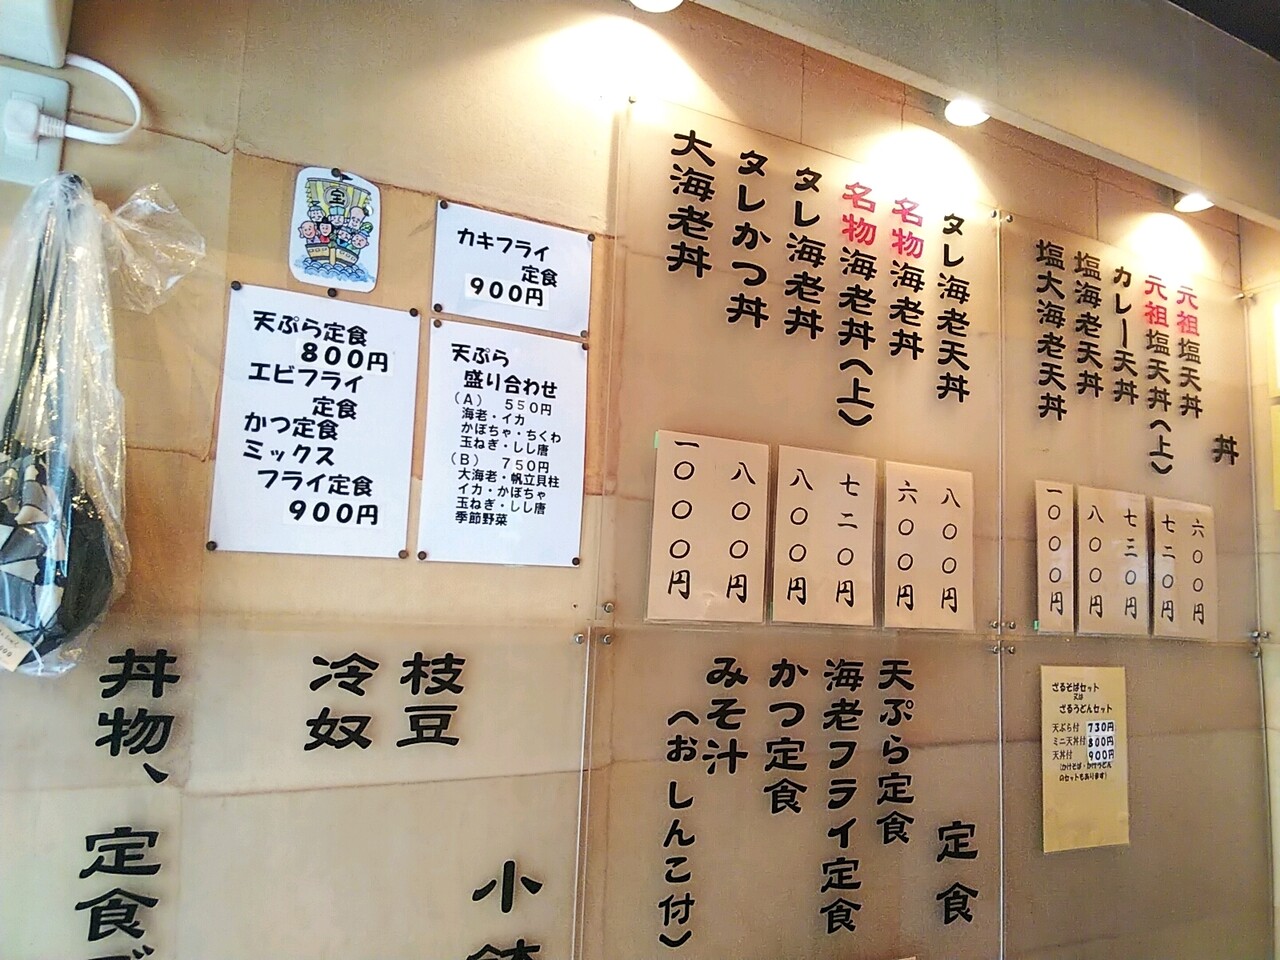 宝
カキフライ
定食
900円
天ぷら定食
800円
エビフライ
定食
かつ定食
ミックス
フライ定食
900円
天ぷら
盛り合わせ
(A) 550円
海老・イカ
かぼちゃ・ちくわ
玉ねぎ・しし唐
(B) 750円
大海老・帆立貝柱
イカ・かぼちゃ
玉ねぎ・しし唐
季節野菜
丼
元祖塩天丼
元祖塩天丼(上)
カレー天丼
塩海老天丼
塩大海老天丼
六〇〇円
七二〇円
七三〇円
八〇〇円
一〇〇〇円
タレ海老天丼
名物海老丼
名物海老丼(上)
タレ海老丼
タレかつ丼
大海老丼
八〇〇円
六〇〇円
七二〇円
八〇〇円
八〇〇円
一〇〇〇円
ざるそばセット
又は
ざるうどんセット
天ぷら付 730円
ミニ天丼付 800円
天丼付 900円
(かけそば・かけうどん
のセットもあります)
定食
天ぷら定食
海老フライ定食
かつ定食
みそ汁
(おしんこ付)
小鉢
枝豆
冷奴
丼物、定食